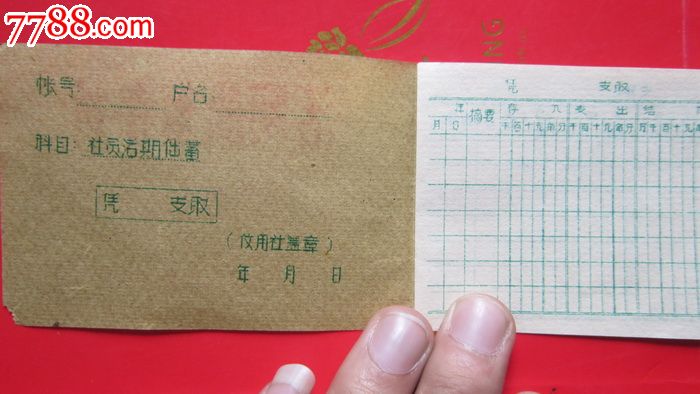 7788.com
帐号 户名
科目：社员活期储蓄
凭 支取
（信用社盖章）
年 月 日
凭 支取
年 摘要 存入 支出 结
月 日 千百十元角分 千百十元角分 万千百十元